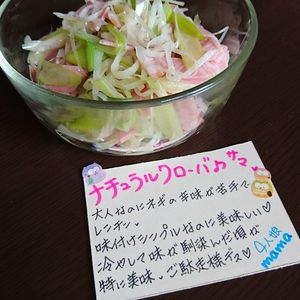 ナチュラルクローバ♪サマ
大人なのにネギの辛味が苦手で
レンチン。
味付けシンプルなのに美味しい♡
冷やして味が馴染んだ頃が
特に美味。ご馳走様デス♡
4人娘
mama